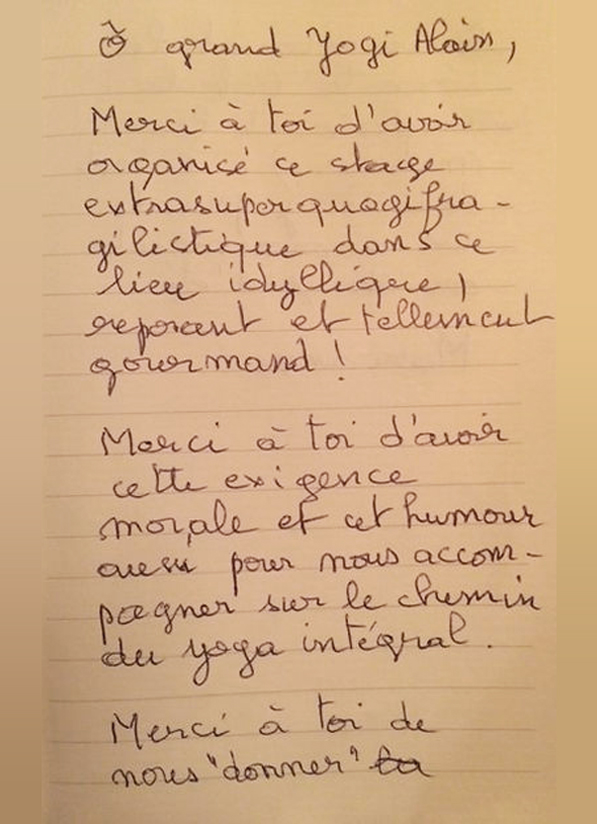 Ô grand Yogi Alain,
Merci à toi d'avoir
organisé ce stage
extrasuperquagifra-
gilictique dans ce
lieu idyllique,
reposant et tellement
gourmand !
Merci à toi d'avoir
cette exigence
morale et cet humour
aussi pour nous accom-
pagner sur le chemin
du yoga intégral.
Merci à toi de
nous "donner" la